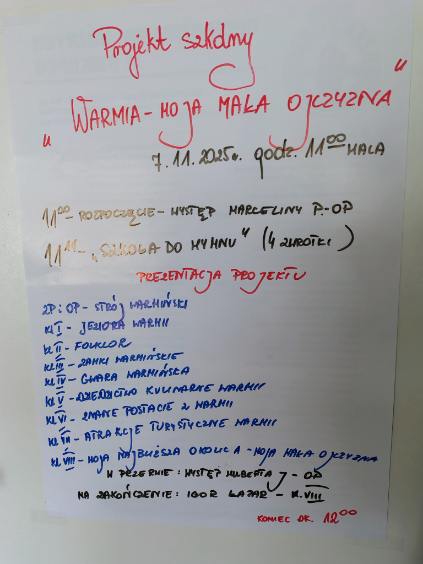 Projekt szkolny
"WARMIA - MOJA MAŁA OJCZYZNA"
7.11.2025r. godz. 11⁰⁰ HALA
11⁰⁰ - ROZPOCZĘCIE - WYSTĘP MARCELINY P. - OP
11¹¹ - „SZKOŁA DO HYMNU" (4 ZWROTKI)
PREZENTACJA PROJEKTU
2P i OP - STRÓJ WARMIŃSKI
KL I - JEZIORA WARMII
KL II - FOLKLOR
KL III - ZAMKI WARMIŃSKIE
KL IV - GWARA WARMIŃSKA
KL V - DZIEDZICTWO KULINARNE WARMII
KL VI - ZNANE POSTACIE Z WARMII
KL VII - ATRAKCJE TURYSTYCZNE WARMII
KL VIII - MOJA NAJBLIŻSZA OKOLICA - MOJA MAŁA OJCZYZNA
W PRZERWIE: WYSTĘP HUBERTA J - OP
NA ZAKOŃCZENIE: IGOR ŁAZAR - KL. VIII
KONIEC OK. 12⁰⁰